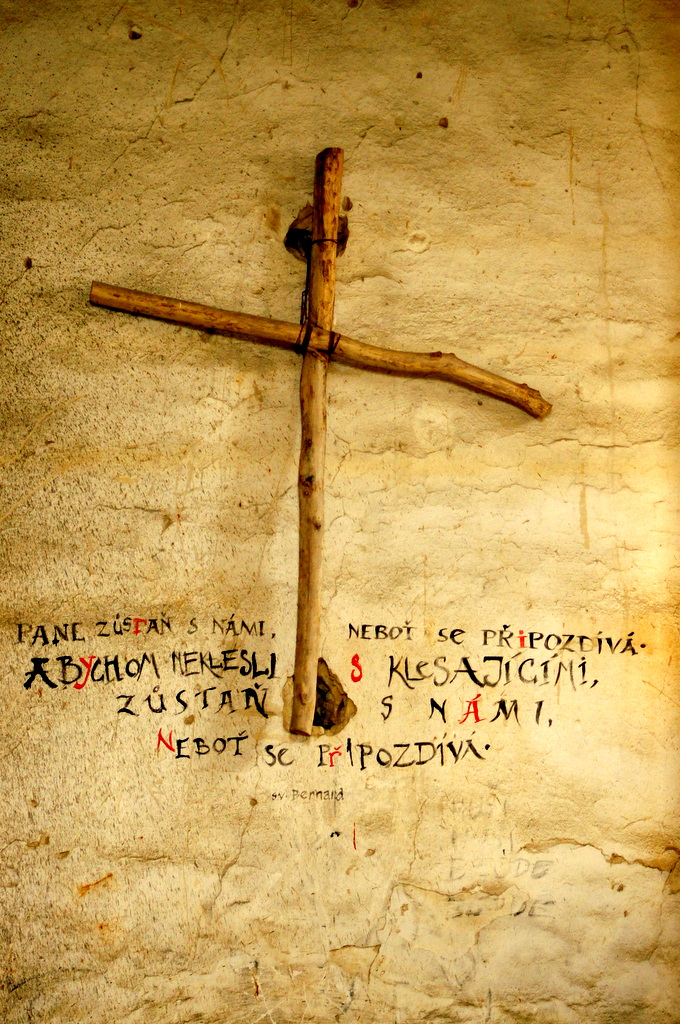 PANE ZŮSTAŇ S NÁMI, NEBOŤ SE PŘIPOZDÍVÁ.
ABYCHOM NEKLESLI S KLESAJÍCÍMI,
ZŮSTAŇ S NÁMI,
NEBOŤ SE PŘIPOZDÍVÁ.
sv. Bernard